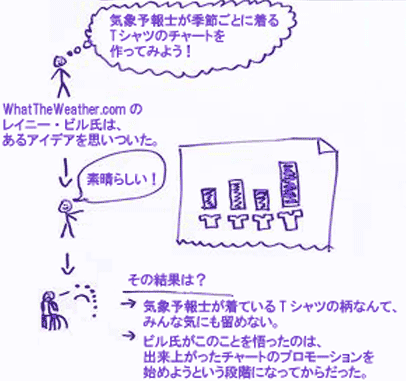 気象予報士が季節ごとに着る
Tシャツのチャートを
作ってみよう！
WhatTheWeather.com の
レイニー・ビル氏は、
あるアイデアを思いついた。
素晴らしい！
その結果は？
気象予報士が着ているTシャツの柄なんて、
みんな気にも留めない。
ビル氏がこのことを悟ったのは、
出来上がったチャートのプロモーションを
始めようという段階になってからだった。